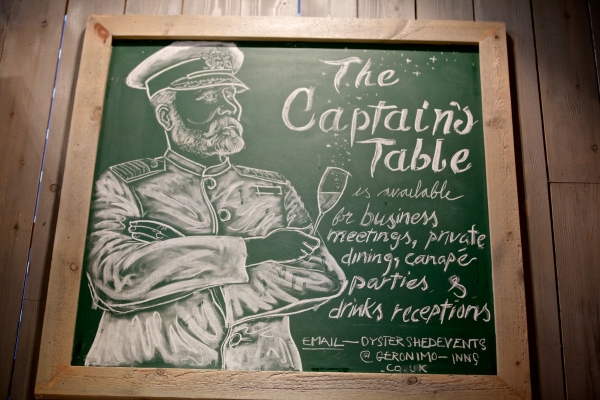 The
Captain's
Table
is available
for business
meetings, private
dining, canape
parties &
drinks receptions
EMAIL — OYSTERSHEDEVENTS
@ GERONIMO-INNS
.CO.UK